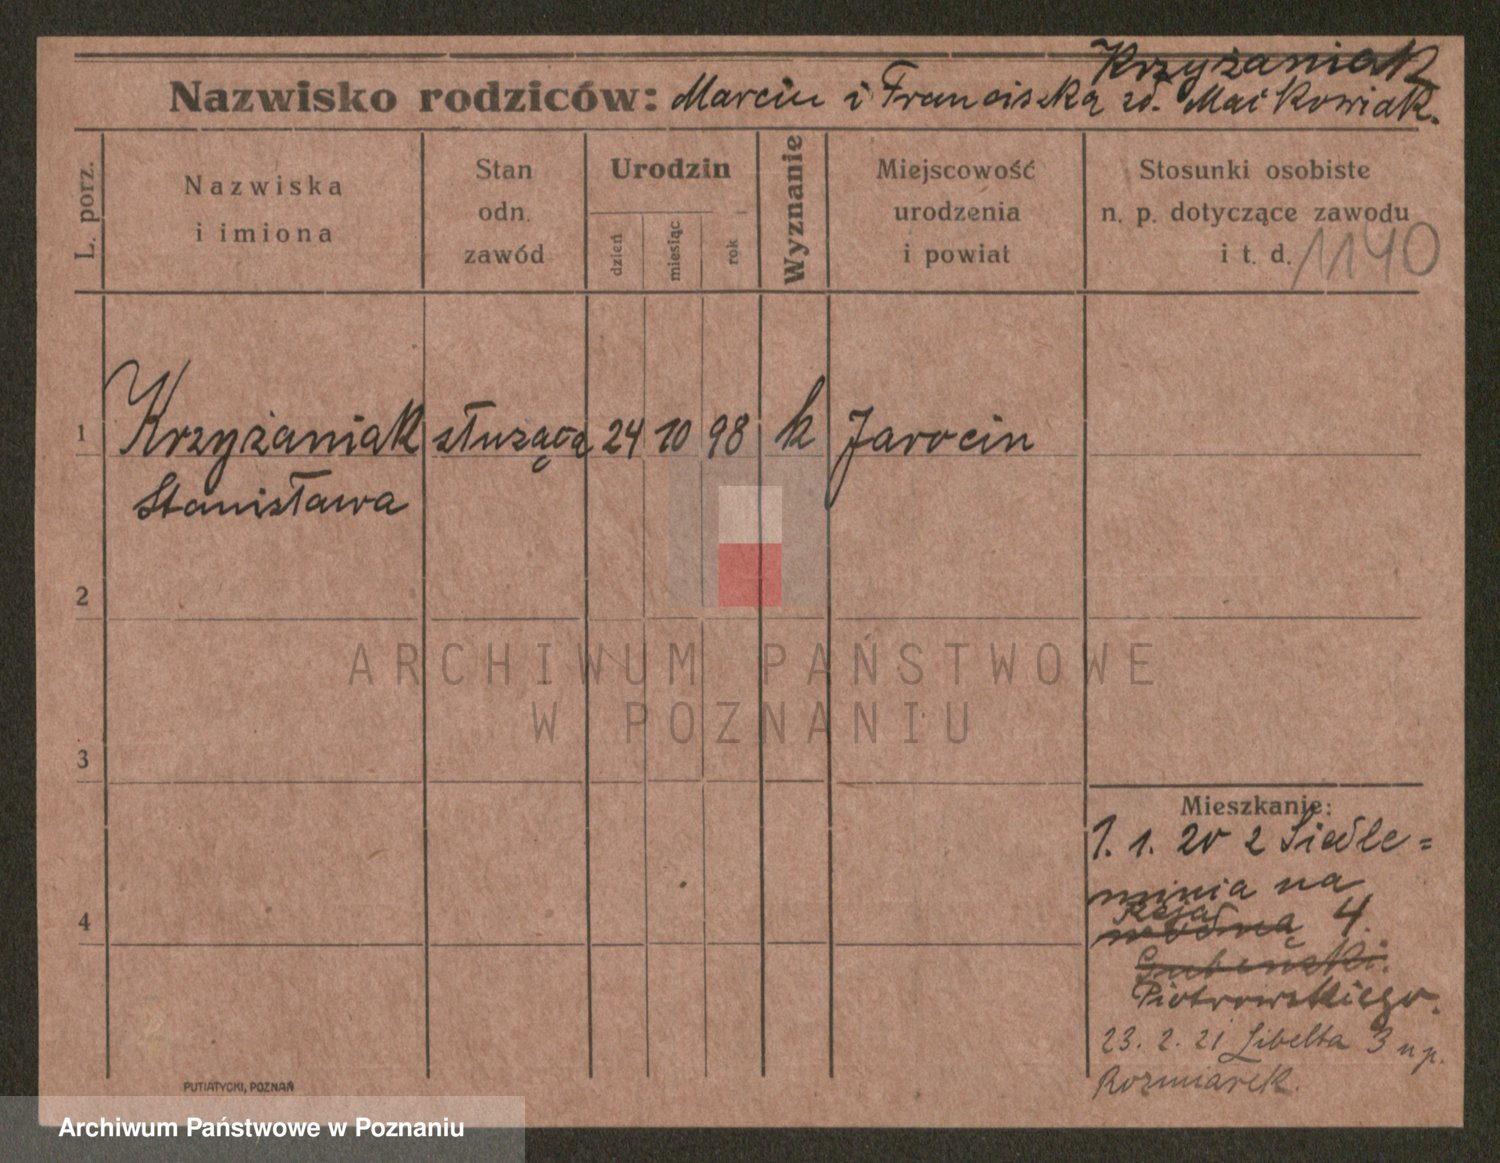 Krzyżaniak
Nazwisko rodziców: Marcin i Franciszka zd. Maćkowiak.
L. porz.
Nazwiska
i imiona
Stan
odn.
zawód
Urodzin
dzień
miesiąc
rok
Wyznanie
Miejscowość
urodzenia
i powiat
Stosunki osobiste
n. p. dotyczące zawodu
i t. d.
1140
1 Krzyżaniak służąca 24 10 98 k Jarocin
Stanisława
2
3
4
ARCHIWUM PAŃSTWOWE
W POZNANIU
Mieszkanie:
1. 1. 20 z Siedle=
minia na
Reja
wodną 4.
Piotrowskiego.
23. 2. 21 Libelta 3 u p.
Rozmiarek.
PUTIATYCKI, POZNAŃ
Archiwum Państwowe w Poznaniu